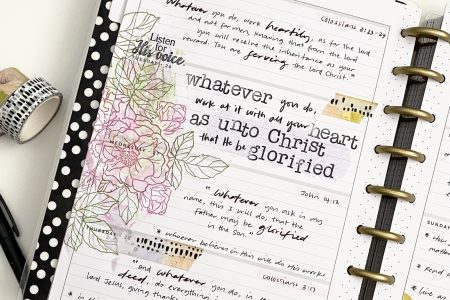 Colossians 3:23-24
whatever you do, work heartily, as for the lord
and not for men, knowing that from the lord
you will receive the inheritance as your
reward. You are serving the lord Christ."
Listen
for
His voice.
whatever you do,
work at it with all your heart
as unto Christ
that He be glorified
WEDNESDAY
John 14:12
"whatever you ask in my
name, this I will do, that the
Father may be glorified
in the son."
THURSDAY
* whoever believes in this will do this works
Colossians 3:17
"and whatever you do, in
deed, do everything
lord Jesus, giving thanks
SUNDAY